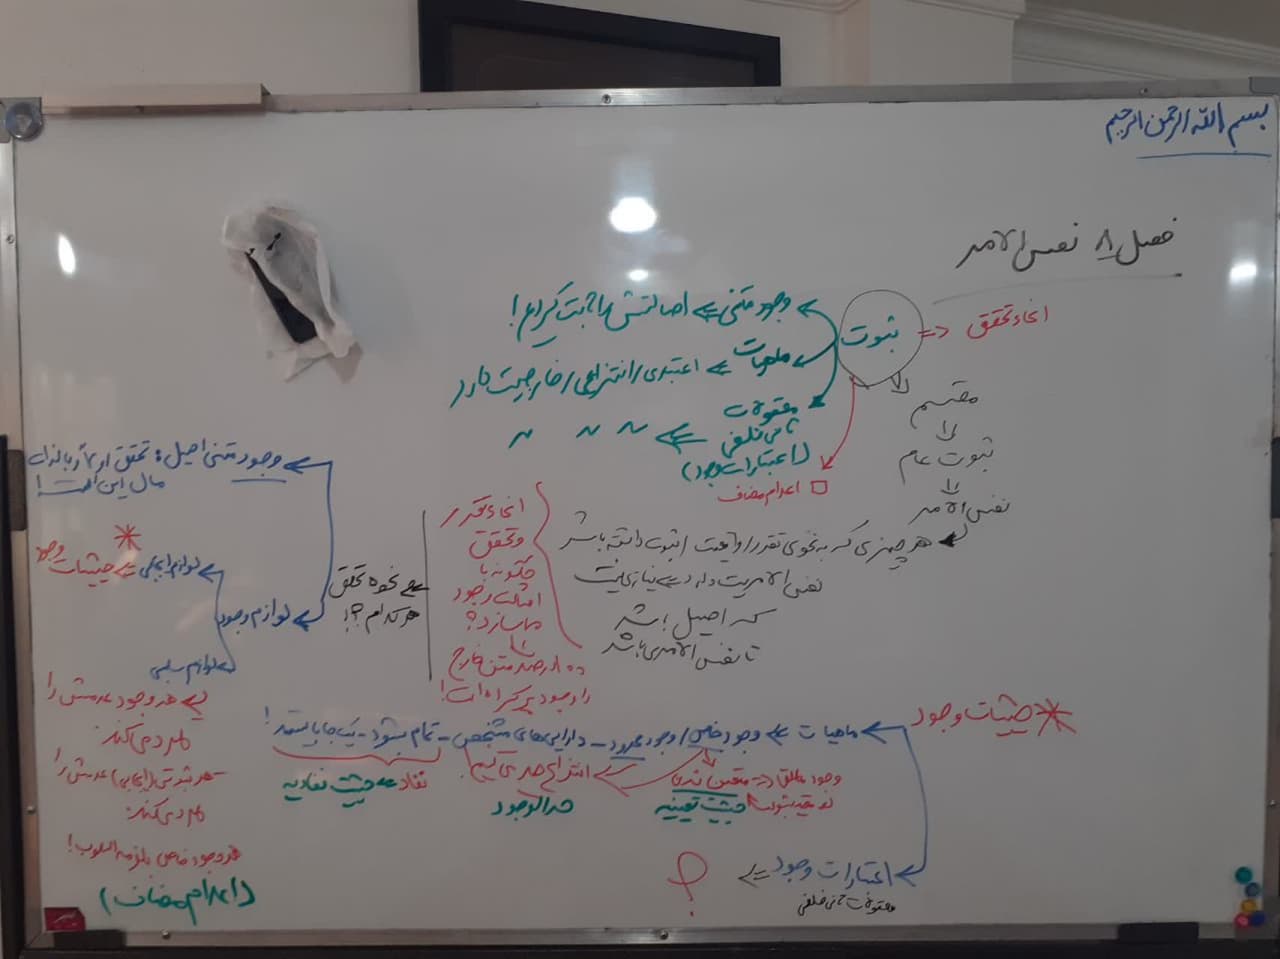 بسم الله الرحمن الرحیم
فصل ۸ نفس الامر
انحاء تحقق <= ثبوت
وجود متنی <= اصالتش را ثابت کردیم!
ماهیات <= اعتباری / انتزاعی / خارجیت دارد
معقولات ثانی فلسفی (اعتبارات وجود) <= ~ ~ ~
□ اعدام مضاف
مقسم
ثبوت عام
نفس الامر
هر چیزی که به نحوی تقرر / واقعیت / ثبوت داشته باشد
نفس الامریت دارد => نیازی نیست
که اصیل باشد
تا نفس الامری باشد
انحاء تقرر
و تحقق
چگونه با
اصالت وجود
می سازد؟
متن خارج
را وجود پر کرده است!
=> نحوه تحقق
هر کدام؟!
وجود متنی اصیل: تحقق اولاً و بالذات
مال این است!
لوازم وجود
لوازم ایجابی => حیثیات وجود
لوازم سلبی
=> هر وجود عدمش را
طرد می کند
هر ثبوتی (ایجابی) عدمش را
طرد می کند
هر وجود خاص یلزمه السلوب!
(اعدام مضاف)
حیثیات وجود
ماهیات <= وجود خاص / وجود محدود - دارایی های مشخص - تمام بشود - یک جا بایستد!
وجود مطلق => متعین شدن
حیثیت تعینیه
انتزاع حد می کنیم!
حد الوجود
نفاد => حیثیت نفادیه
اعتبارات وجود <= ؟
معقولات ثانی فلسفی